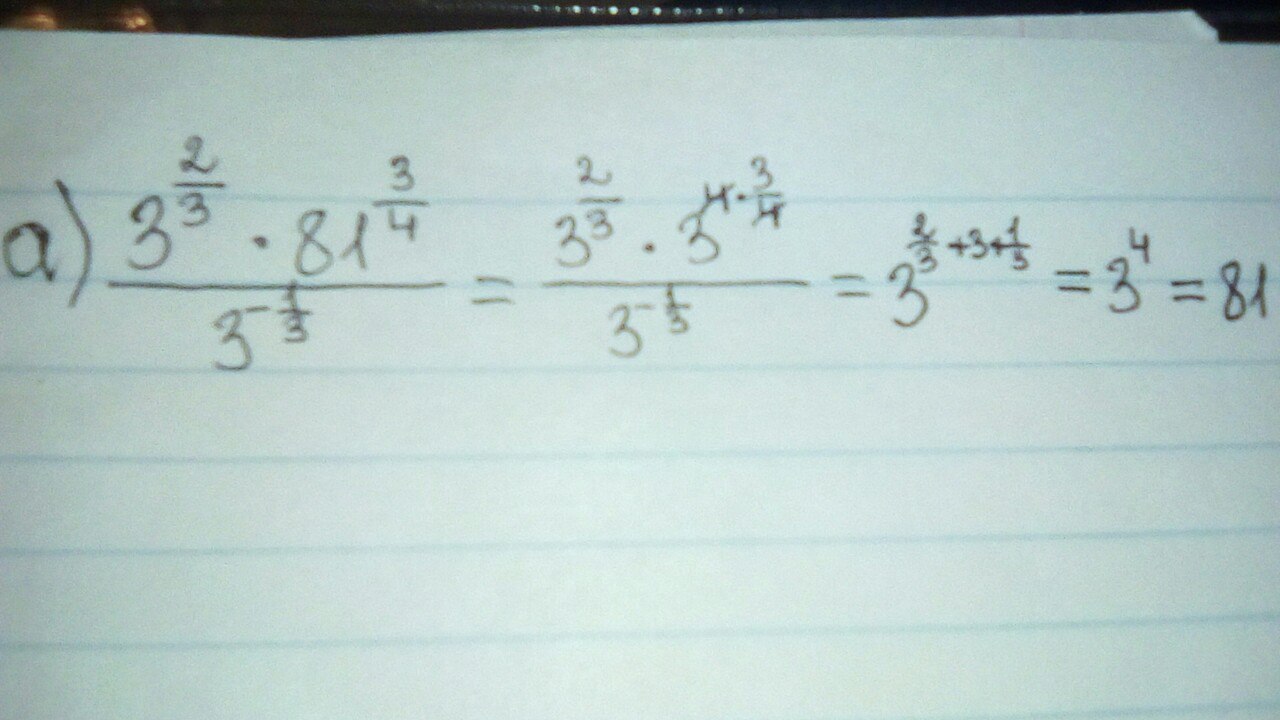 а) \frac{3^{\frac{2}{3}} \cdot 81^{\frac{3}{4}}}{3^{-\frac{1}{3}}} = \frac{3^{\frac{2}{3}} \cdot 3^{4 \cdot \frac{3}{4}}}{3^{-\frac{1}{3}}} = 3^{\frac{2}{3}+3+\frac{1}{3}} = 3^4 = 81